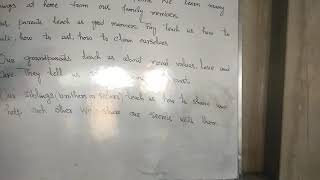 We learn many
things at home from our family members.
parents teach us good manners. They teach us how to
talk, how to eat, how to clean ourselves.
Our grandparents teach us about moral values, love and
care. They tell us
Our siblings (brothers or sisters) teach us how to share and
help each other. We share our secrets with them.